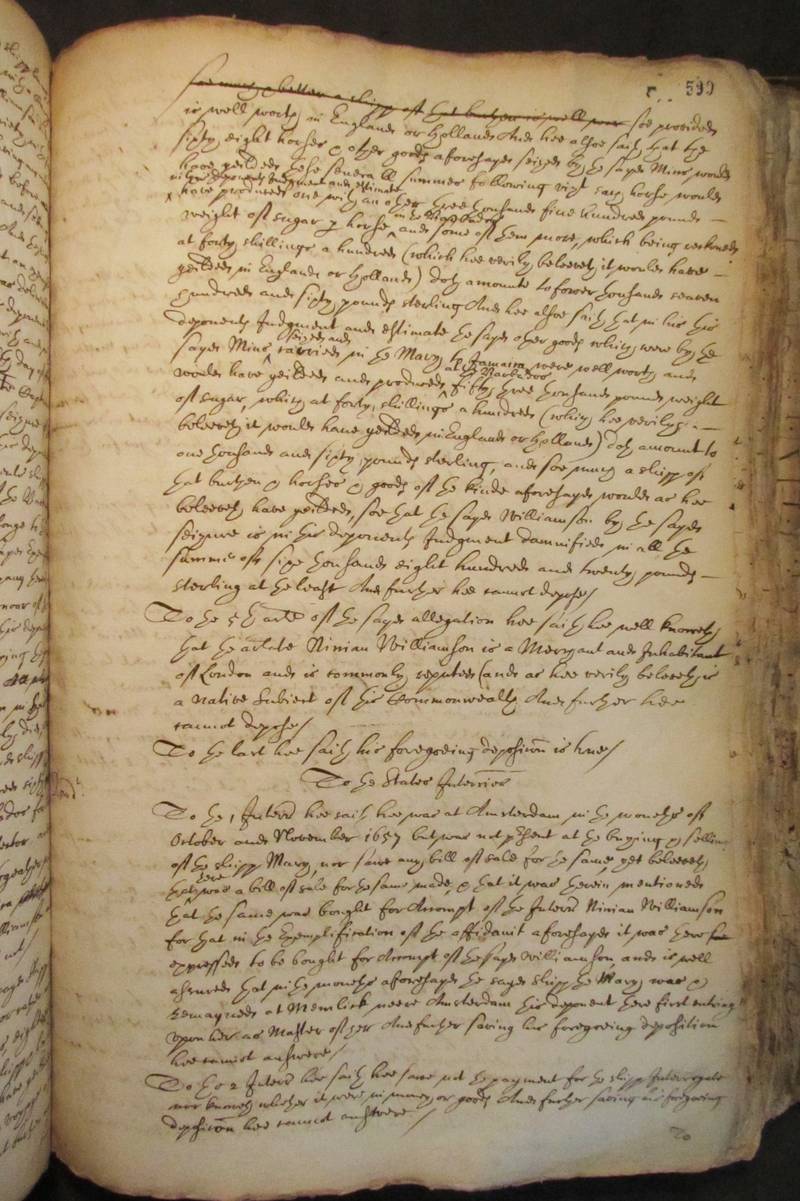 599
soe much & better a shipp of that burthen is well wor soe provided
is well worth in England or Holland And hee alsoe saith that the
sixty eight horses & other goods aforesayd seized by the sayd Mins would
have yeilded these severall summes following vizt each horse would
in his deponents Judgment and estimate
have produced one with an other three thousand five hundred pounds —
in the Barbados
weight of sugar p horse and some of them more, which being reckoned
at forty shillings a hundred (which hee verily beleeveth it would have —
yeilded in England or Holland) doth amounte to fower thousand seaven
hundred and sixty pounds sterling And hee alsoe saith that in his this
deponents Judgment and estimate the sayd other goods which were by the
seized and
sayd Mins carried in the Mary to Jamaica were well worth and
at the Barbados
would have yeilded and produced fifty three thousand pounds weight
of sugar, which at forty shillings a hundred (which hee verily —
beleeveth it would have yeilded in England or Holland) doth amount to
one thousand and sixty pounds sterling, and soe much a shipp of
that burthen & horses & goods of the kinde aforesayd would as hee
beleeveth have yeilded, soe that the sayd Williamson by the sayd
seizure is in this deponents Judgment damnified in all the
summe of sixe thousand eight hundred and twenty pounds —
sterling at the least And further hee cannot depose/
To the 5th arte of the sayd allegation hee saith hee well knoweth
that the arlate Ninian Williamson is a Merchant and Inhabitant
of London and is commonly reputed (and as hee verily beleeveth is
a native Subiect of this Commonwealth And further hee
cannot depose/
To the last hee saith his foregoeing deposicon is true/
To the States Interries
To the 1 Interrie hee saith hee was at Amsterdam in the moneths of
October and November 1657 but was not present at the buying & selling
of the shipp Mary, nor sawe any bill of sale for the same, yet beleeveth
there
that was a bill of sale for the same made, & that it was therein mentioned
that the same was bought for Accompt of the Interrd Ninian Williamson
for that in the Exemplification of the affidavit aforesayd it was there soe
expressed to be bought for Accompt of the sayd Williamson and is well
assured that in the moneths aforesayd the sayd shipp the Mary was &
remayned at Memlick neere Amsterdam this deponent there first entring
upon her as Master of her And further saving his foregoeing deposition
hee cannot answere/
To the 2 Interrie hee saith hee sawe not the payment for the shipp Interrogate
nor knoweth whether it were in money or goods And further saving his foregoeing
deposicon hee cannot answere/
To